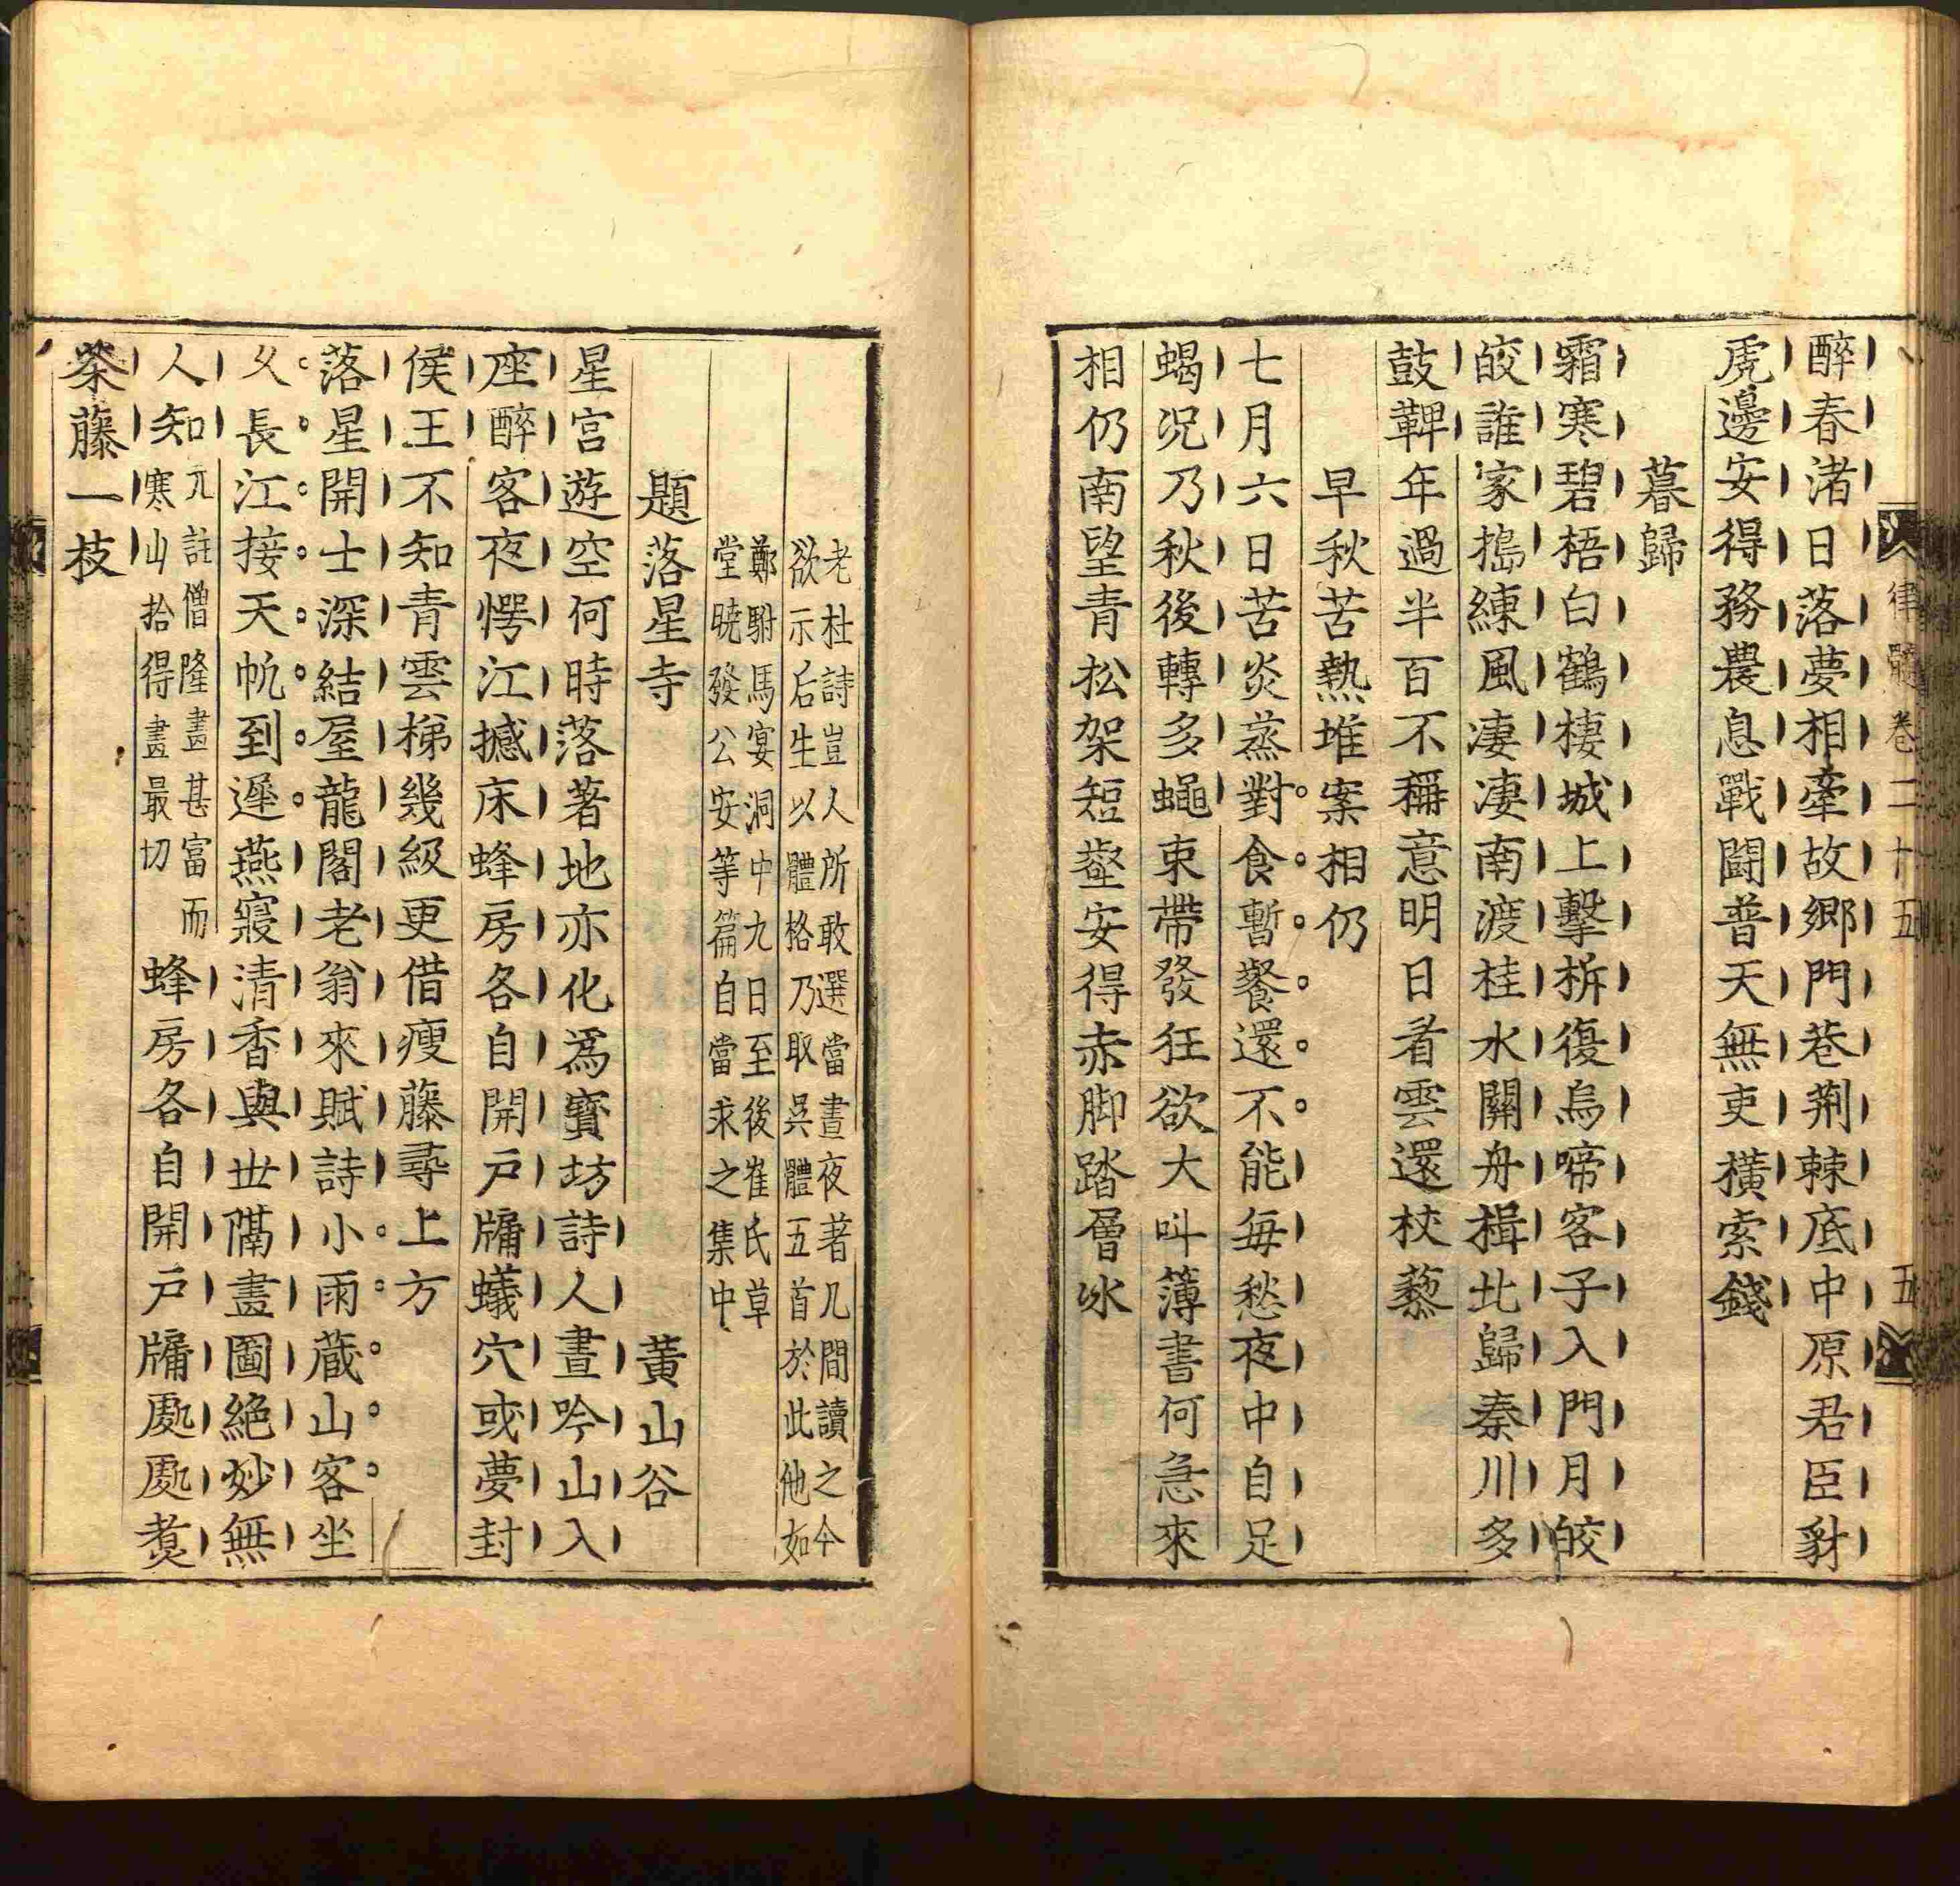 律髓卷二十五 五
醉春渚日落夢相牽故鄉門巷荆棘底中原君臣豺
虎邊安得務農息戰鬪普天無吏橫索錢
暮歸
霜寒碧梧白鶴棲城上擊柝復烏啼客子入門月皎
皎誰家搗練風凄凄南渡桂水闕舟楫北歸秦川多
鼓鞞年過半百不稱意明日看雲還杖藜
早秋苦熱堆案相仍
七月六日苦炎蒸對食暫餐還不能每愁夜中自足
蝎況乃秋後轉多蠅束帶發狂欲大叫簿書何急來
相仍南望青松架短壑安得赤脚踏層冰
老杜詩豈人所敢選當晝夜著几間讀之今
欲示后生以體格乃取吳體五首於此他如
鄭駙馬宴洞中九日至後崔氏草
堂曉發公安等篇自當求之集中
題落星寺 黃山谷
星宮遊空何時落著地亦化爲寶坊詩人晝吟山入
座醉客夜愕江撼床蜂房各自開戸牖蟻穴或夢封
侯王不知青雲梯幾級更借瘦藤尋上方
落星開士深結屋龍閣老翁來賦詩小雨蔵山客坐
久長江接天帆到遲燕寢清香與世隔畫圖絕妙無
人知
元註僧隆畫甚富而
寒山拾得畫最切
蜂房各自開戸牖處處煑
茶藤一枝